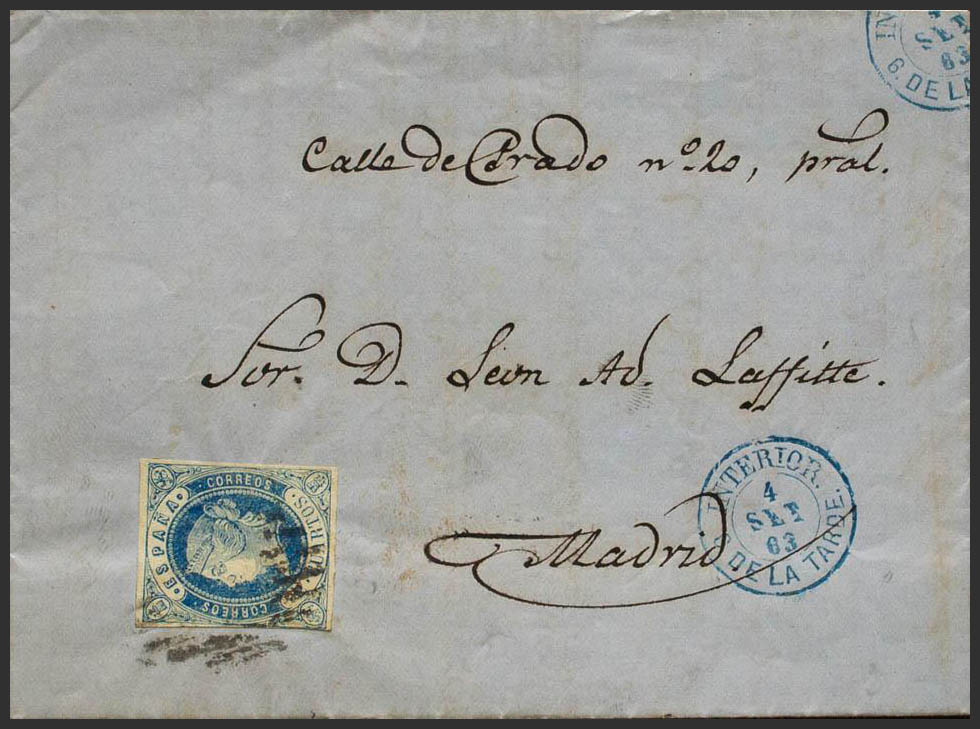 SET
63
6. DE LA
Calle de Prado nº 20, pral.
Sor. D. Leon Ad. Laffitte.
Madrid
INTERIOR.
4
SET
63
DE LA TARDE.
CORREOS
ESPAÑA
CORREOS